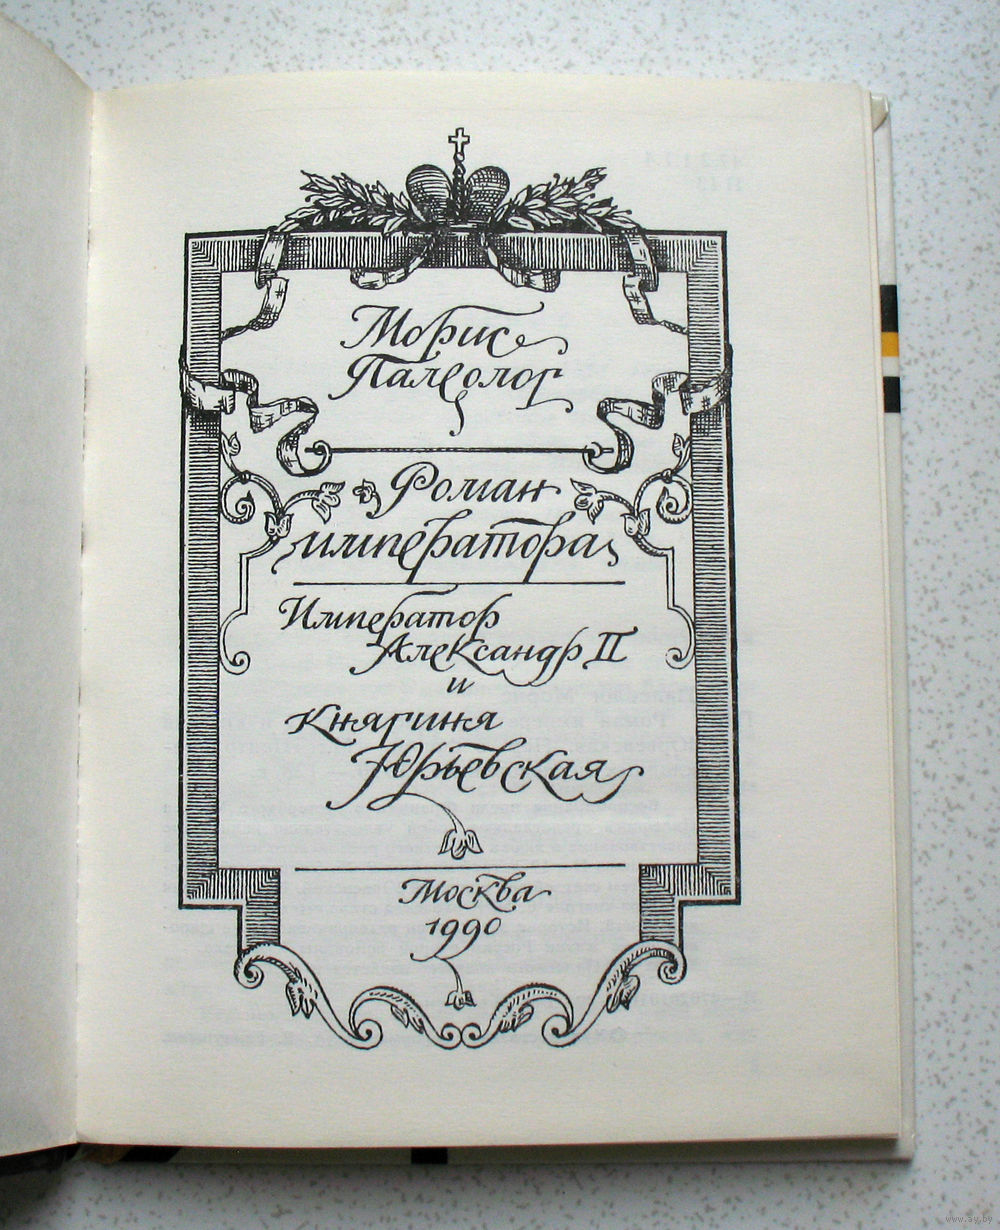 Морис
Палеолог
Роман
императора
Император
Александр II
и
Княгиня
Юрьевская
Москва
1990
www.ay.by